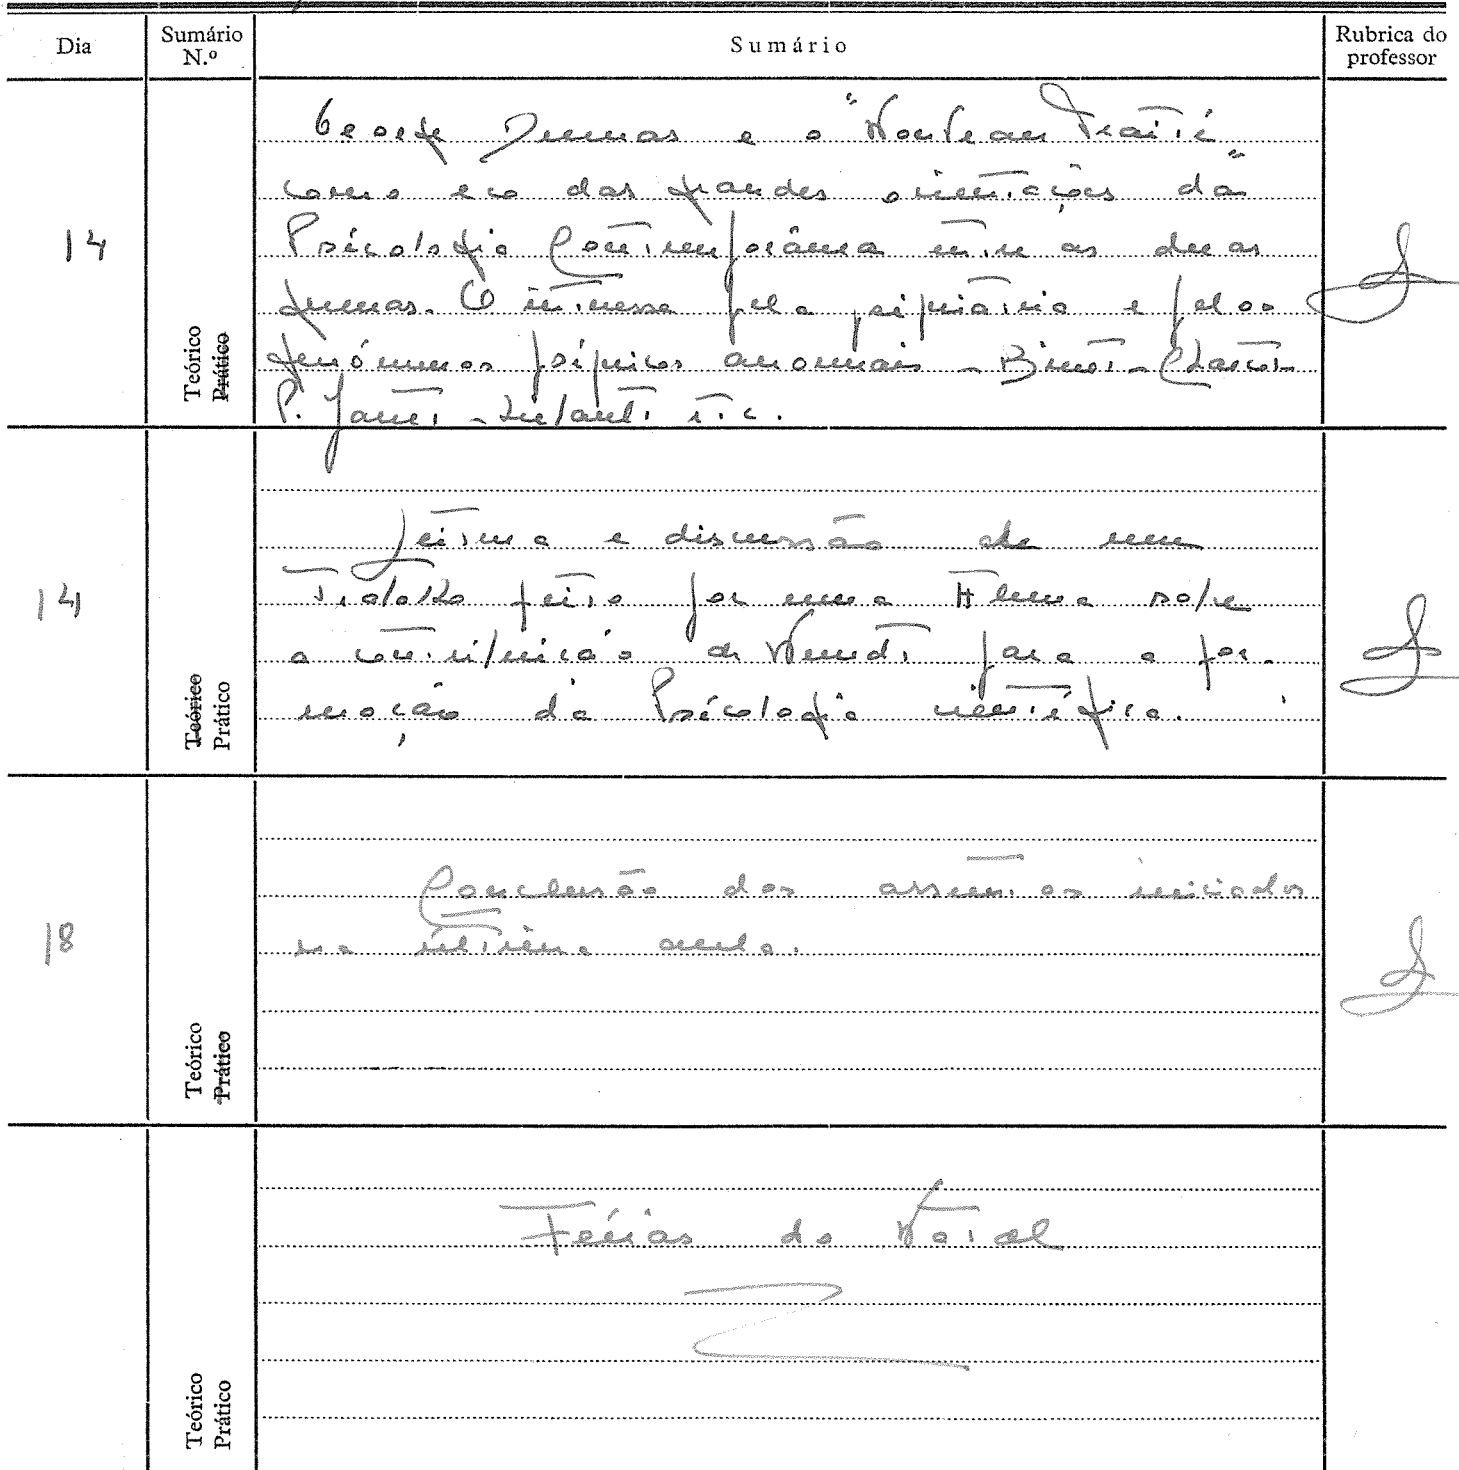 Dia
Sumário N.º
Sumário
Rubrica do professor
14
Teórico
Prático
George Dumas e o "Nouveau Traité"
como eco das grandes orientações da
Psicologia Contemporânea entre as duas
guerras. O interesse pela psiquiatria e pelos
fenómenos psíquicos anormais - Binet - Charcot
P. Janet - etc.
14
Teórico
Prático
Leitura e discussão de um
Trabalho feito por uma Aluna sobre
a contribuição de Wundt para a for-
mação da Psicologia científica.
18
Teórico
Prático
Conclusão dos assuntos iniciados
na última aula.
Teórico
Prático
Férias do Natal